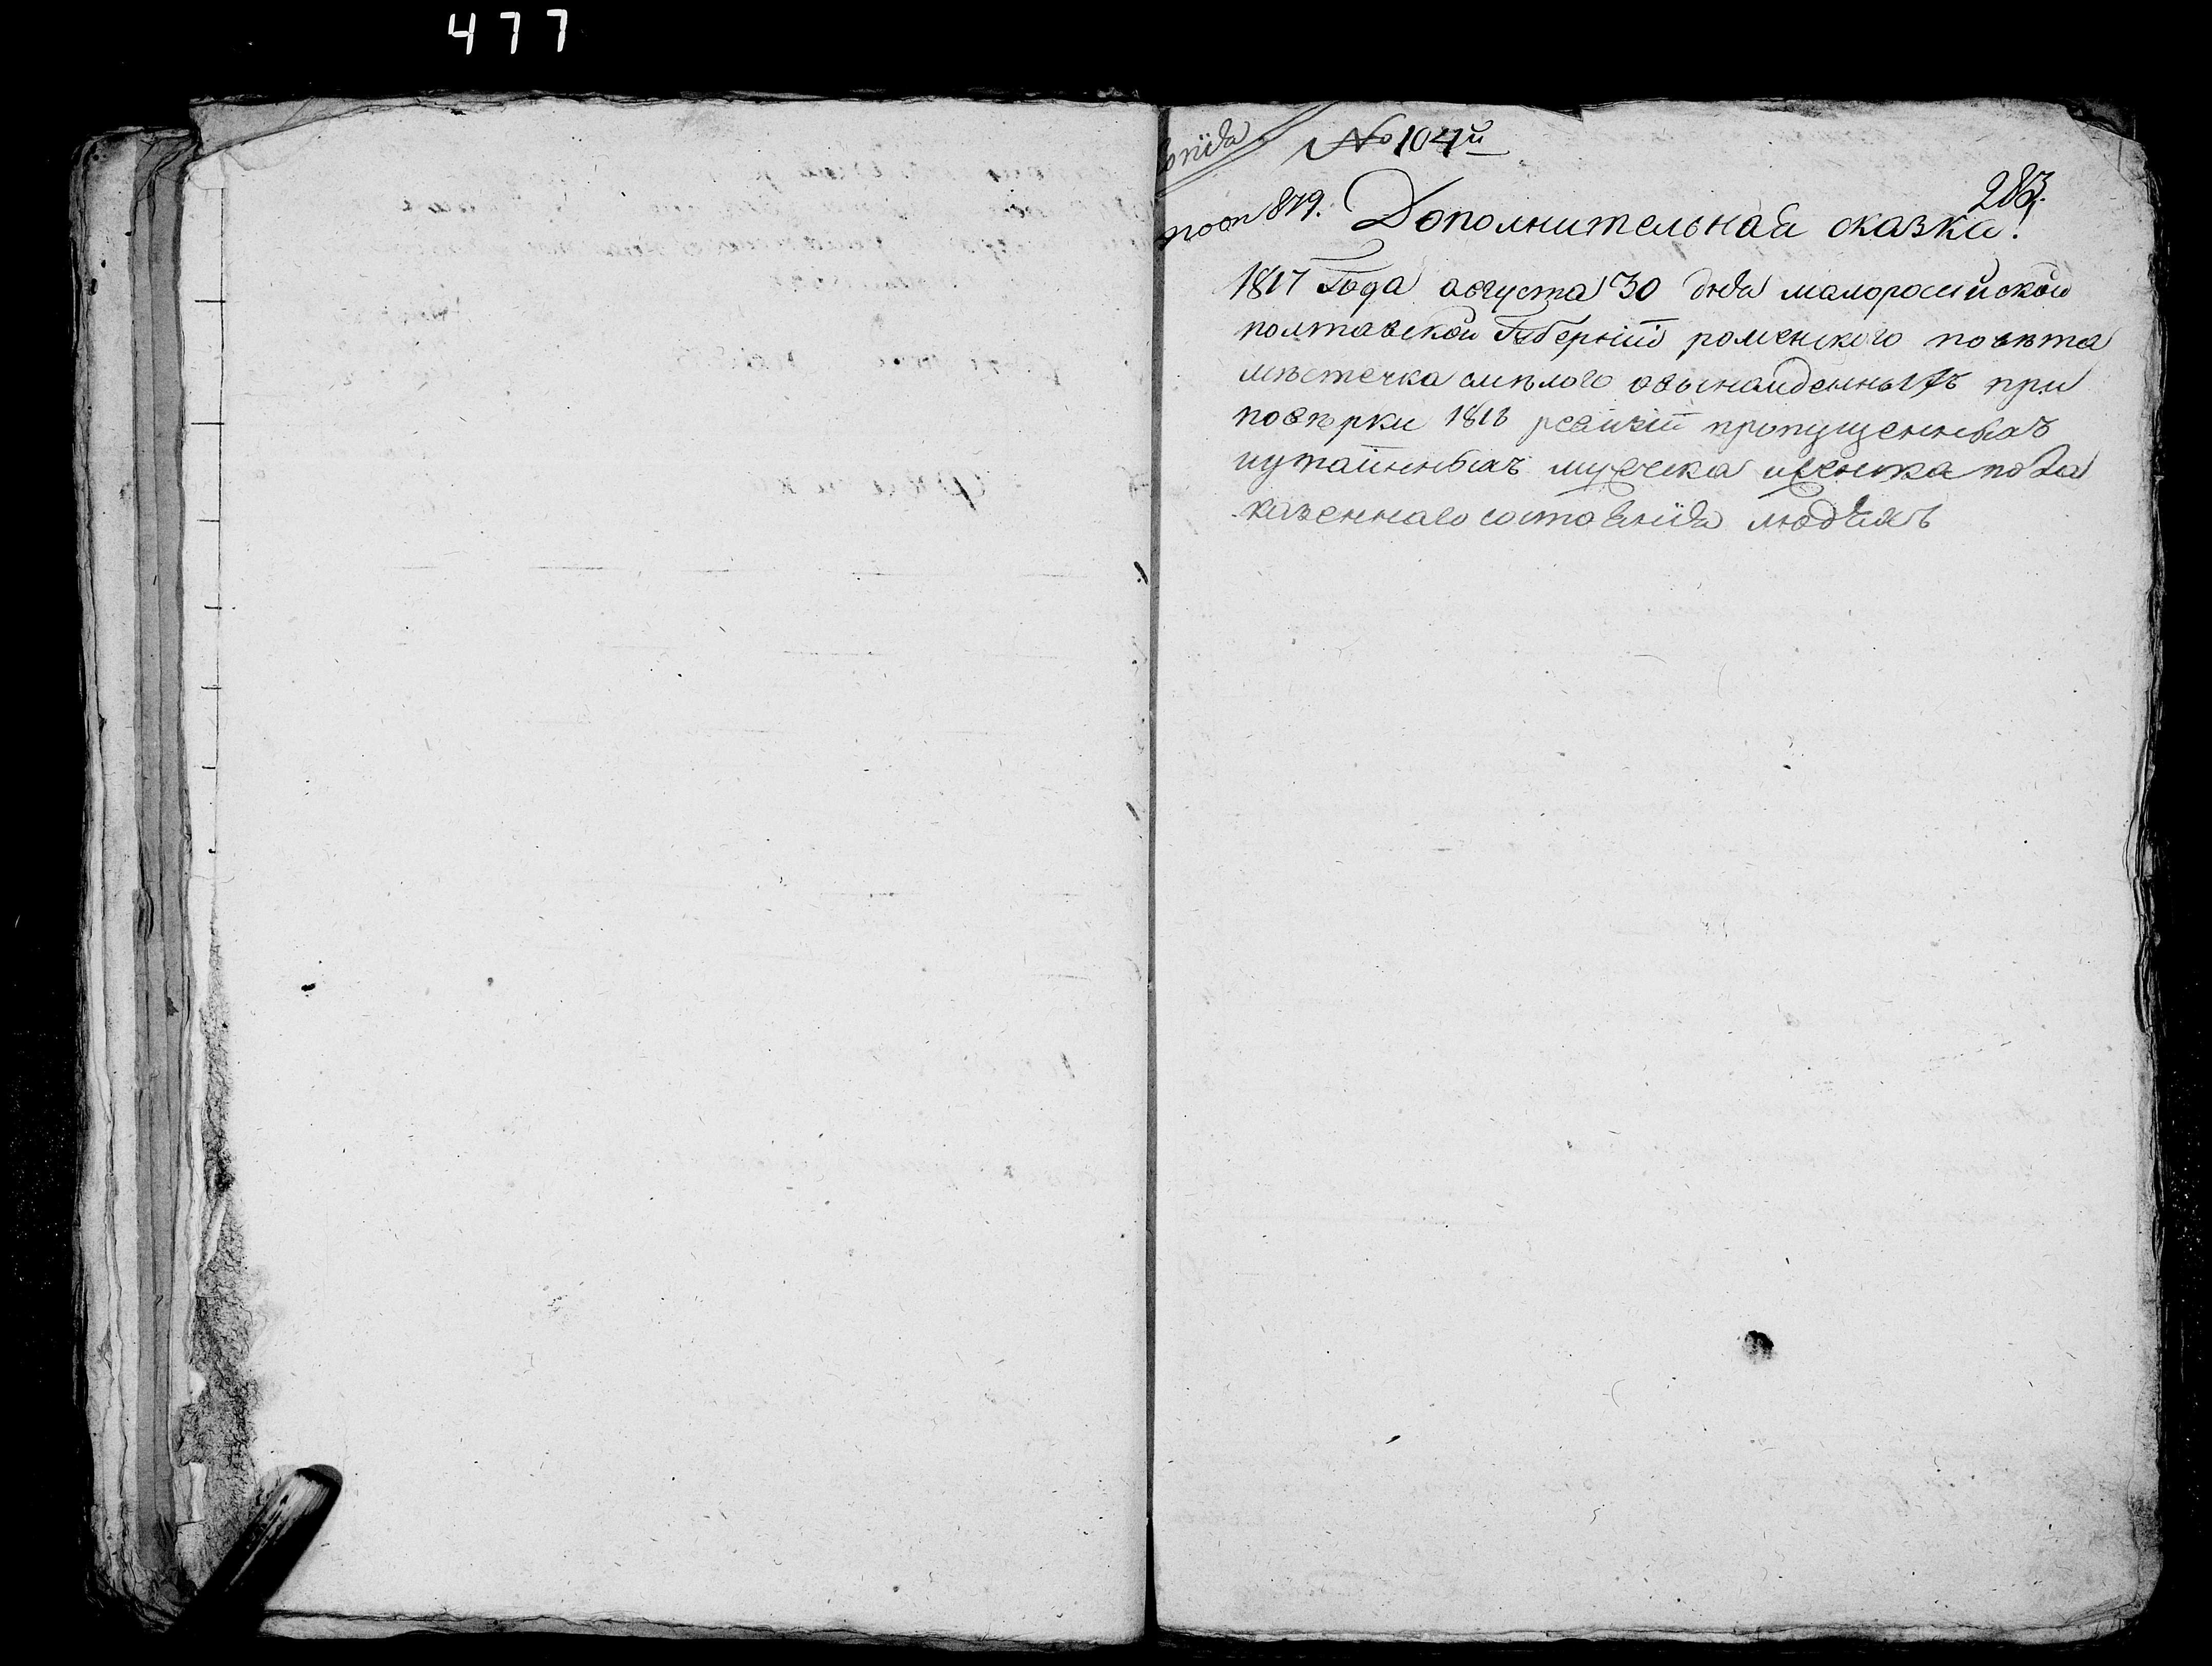 477
№ 104й
283.
879. Дополнительная сказка!
1817 Года августа 30 дня малороссийской
полтавской Губернии роменского повѣта
мѣстечка смѣлого обысканденныхъ при
повѣрки 1816 ревизіи пропущенныхъ
иутаиненныхъ мужеска иженска пола
казеннаго состоянїя людяхъ